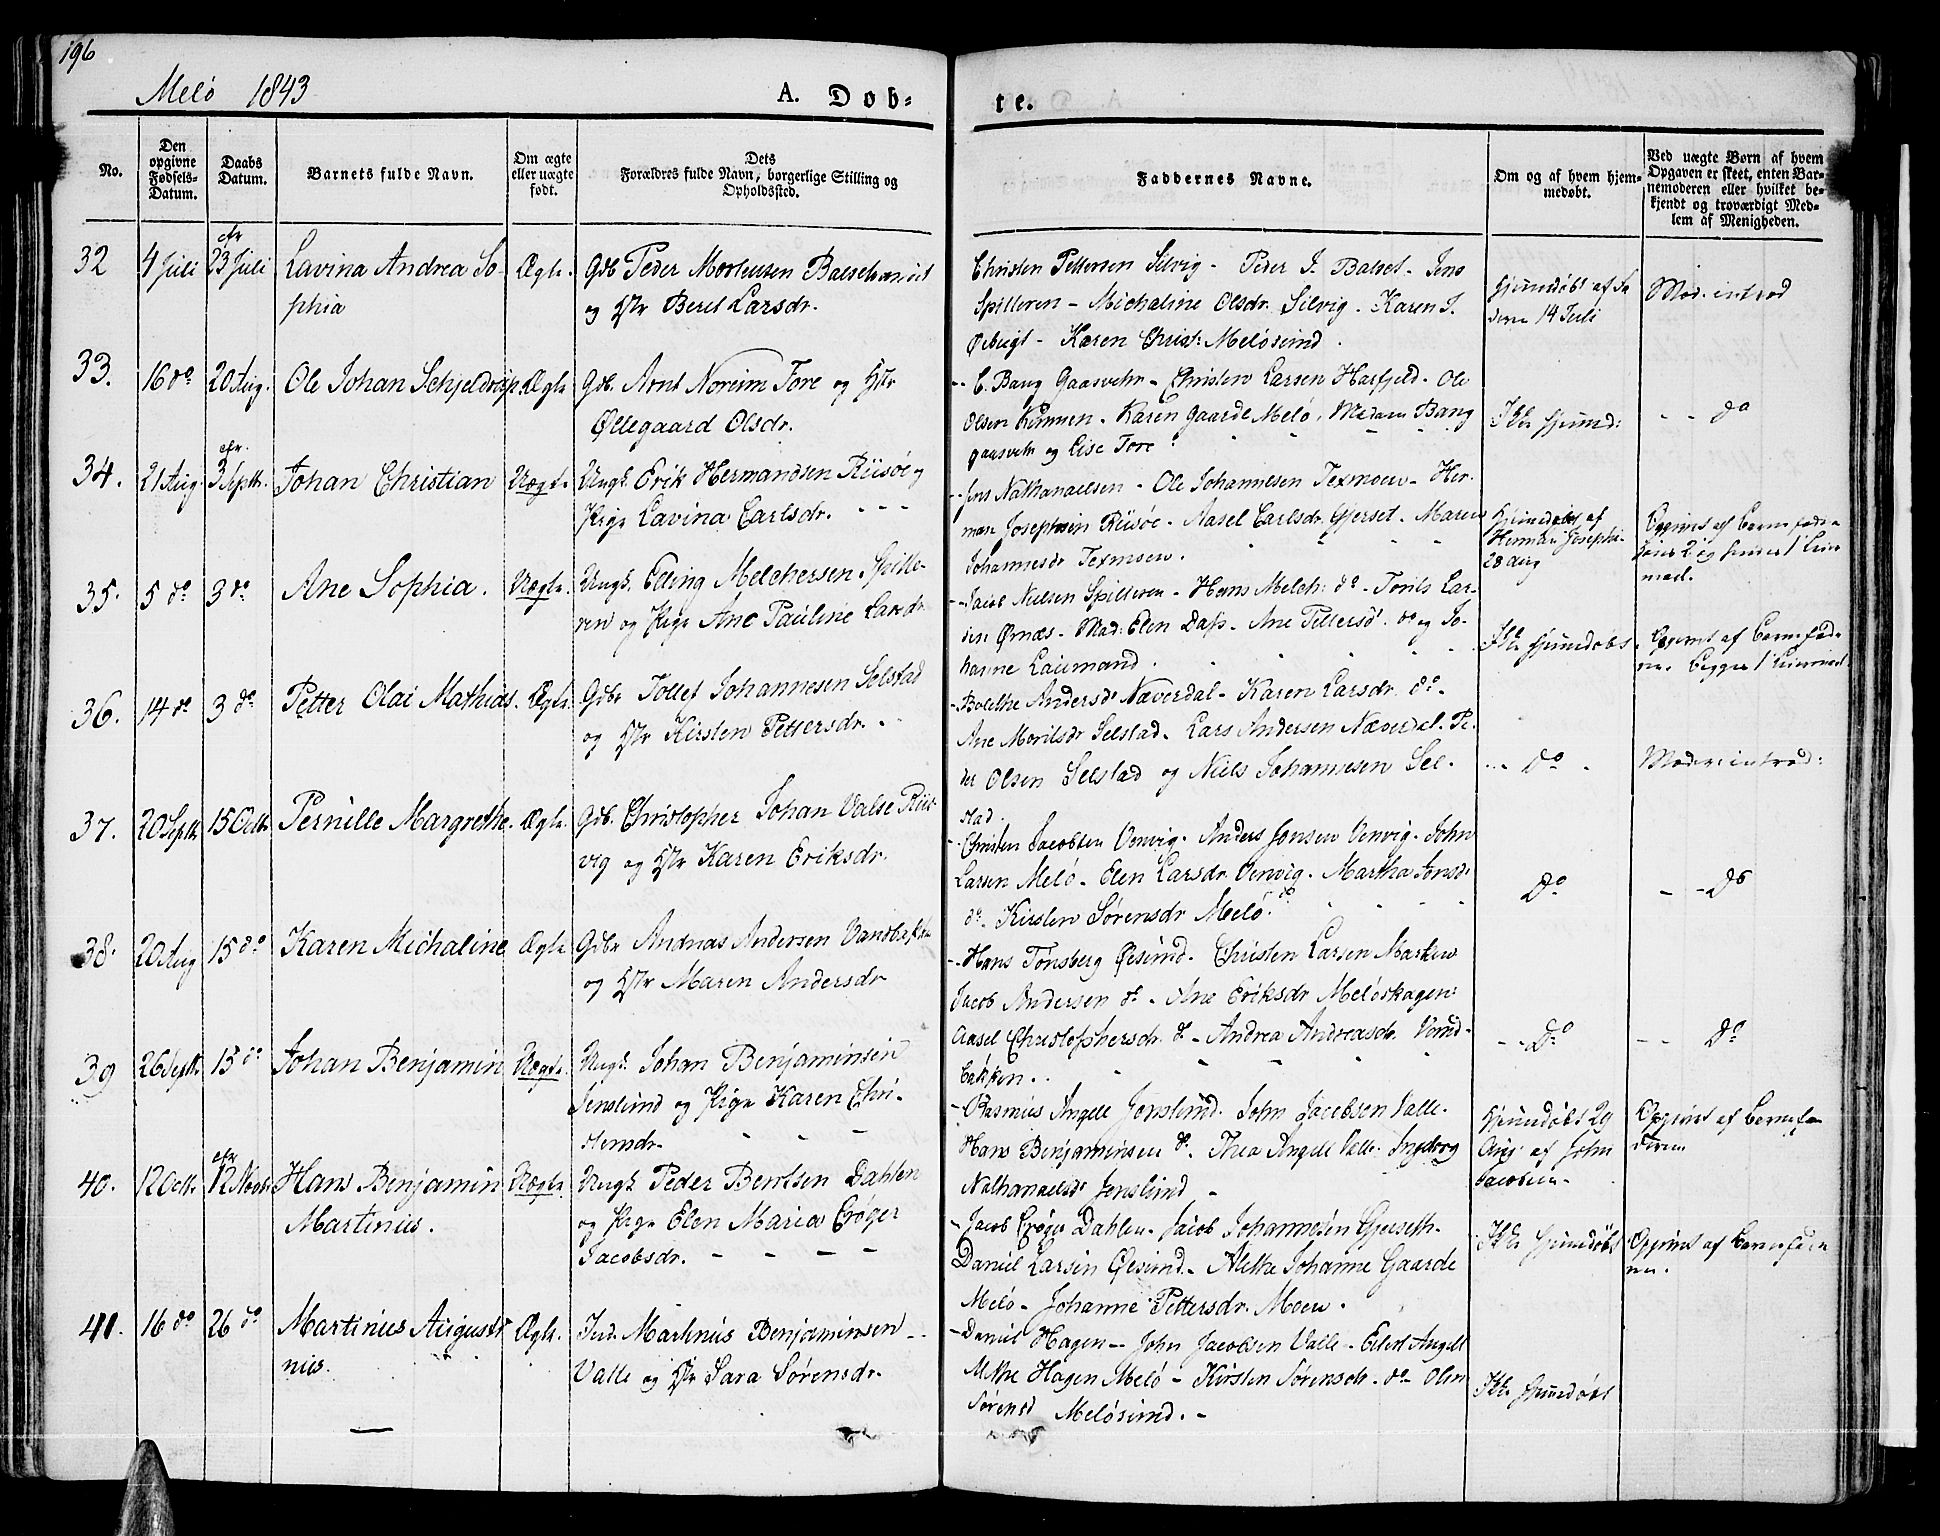 196
Melö 1843
A. Døb-
te.
No.
Den opgivne Fødsels-Datum.
Daabs Datum.
Barnets fulde Navn.
Om ægte eller uægte født.
Dets Forældres fulde Navn, borgerlige Stilling og Opholdssted.
Faddernes Navne.
Om og af hvem hjemmedøbt.
Ved uægte Børn af hvem Opgaven er skeet, enten Barnemoderen eller hvilket bekjendt og troværdigt Medlem af Menigheden.
32 4 Juli 23 Juli Lavina Andrea So-
phia
Ægte. Gdb Peder Mortensen
og Hstr Berit Larsdr.
Christen Pettersen Selvig - Peder J. Balset - Jens
Spilleren - Michaline Olsdr. Selvig - Karen J.
- Karen Christ: Melösund.
14 Juli
Mod. introd
33. 16 do 20 Aug. Ole Johan Schjeldrup. Ægte Gdb. Arnt Noreim Tore og Hstr
Øllegaard Olsdr.
C. Bang Gaasvehr - Christen Larsen Hasfjeld - Ole
Olsen - Karen Gaarde Melö, Madam Bang
Gaasvehr og Else Tore
Ikke hjemmd:
- - do
34. 21 Aug. 3 Septb. Johan Christian Uægte. Ungk. Erik Hermandsen Riisöe og
Pige Lavina Carlsdr. - - -
Jens Nathanaelsen - Ole Johannesen Texmoen - Her-
man Josephsen Riisöe - Aasel Carlsdr. Gjerset - Maren
Johannesdr Texmoen.
Hjemmedöbt af
Herman Josephs.
28 Aug
Opgivet af Barnefade-
35. 5 do 3 do Ane Sophia. Uægte. Ungk. Eling Melchersen Spille-
ren og Pige Ane Pauline Larsdr
Jacob Nielsen Spilleren - Hans Melch: do - Torils Lar-
Ørnæs - Mad: Elen Dass - Ane Pettersd do og Jo-
hanne Laumand.
Ikke hjemmedöbt.
Opgivet af Barnefade-
36. 14 do 3 do Petter Olai Mathias. Ægte. Gdbr Tollef Johannesen Selstad
og Hstr Kirsten Pettersdr.
Bolethe Andersdr Næverdal - Karen Larsdr. do -
Ane Morilsdr Selstad - Lars Andersen Næverdal - Pe-
der Olsen Selstad og Niels Johannesen Sel-
stad.
- - do -
Moder: introd:
37. 20 Septb 15 Octb. Pernille Margrethe. Ægte. Gdb. Christopher Johan Valse Riis-
vig og Hstr Karen Eriksdr.
Christen Jacobsen Venvig. Anders Jonsen Venvig. John
Larsen Melö - Elen Larsdr. Venvig. Martha Jonsd
do. Kirsten Sörensdr Melö.
do
- - do
38. 20 Aug 15 do Karen Michaline Ægte Gdbr Andreas Andersen Vandbakken
og Hstr Maren Andersdr
Hans Tønsberg Øesund. Christen Larsen Marken
Jacob Andersen do - Ane Eriksdr Melöskagen
Aasel Christophersdr. do - Andrea Andreasdr. Vand-
bakken.
- - do
- - do
39 26 Septb. 15 do Johan Benjamin Uægte. Ungk. Johan Benjaminsen
Jenslund og Pige Karen Chri-
stensdr.
Rasmus Angell Jenslund. John Jacobsen Valle.
Hans Benjaminsen do. Thea Angell Valle. Ingeborg
Nathanaelsdr Jenslund -
Hjemmedöbt 29
af John
Jacobsen -
Opgivet af Barnefa-
deren
40. 12 Octb. 12 Novb. Hans Benjamin
Martinus.
Uægte. Ungk. Peder Berntsen Dahlen
og Pige Elen Maria Crøger
Jacobsdr. - - - -
Jacob Crøger Dahlen - Jacob Johannesen Gjerseth -
Daniel Larsen Øesund - Alethe Johanne Gaarde
Melö - Johanne Pettersdr. Moen.
Ikke hjemmedöbt
Opgivet af Barnefade-
ren.
41. 16 do 26 do Martinus Augusti-
nus.
Ægte. Ind. Martinus Benjaminsen -
Valle og Hstr Sara Sörensdr.
Daniel Hagen - John Jacobsen Valle - Eilert Angell
Hagen Melö - Kirsten Sörensdr. do - Olen
Sörensd Melösund. -
Ikke hjemmedöbt